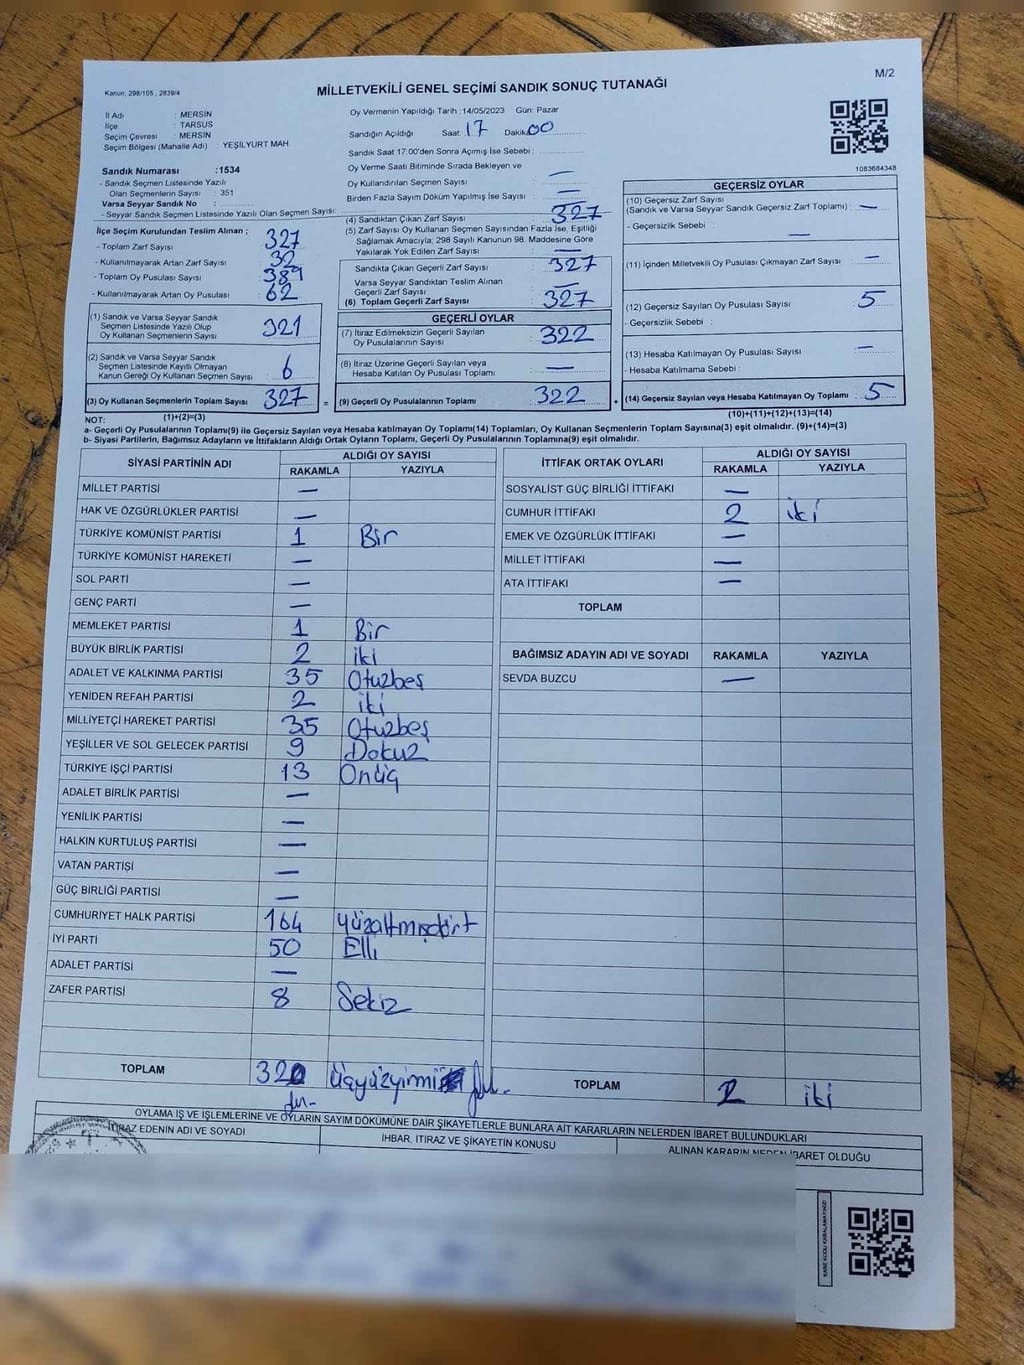 MİLLETVEKİLİ GENEL SEÇİMİ SANDIK SONUÇ TUTANAĞI
M/2
Kanun: 298/105 , 2839/4
İl Adı : MERSİN
İlçe : TARSUS
Seçim Çevresi : MERSİN
Seçim Bölgesi (Mahalle Adı) : YEŞİLYURT MAH.
Oy Vermenin Yapıldığı Tarih : 14/05/2023 Gün: Pazar
Sandığın Açıldığı Saat: 17 Dakika: 00
Sandık Saat 17:00'den Sonra Açılmış İse Sebebi :
1083684348
Sandık Numarası : 1534
- Sandık Seçmen Listesinde Yazılı
Olan Seçmenlerin Sayısı : 351
Varsa Seyyar Sandık No :
- Seyyar Sandık Seçmen Listesinde Yazılı Olan Seçmen Sayısı:
İlçe Seçim Kurulundan Teslim Alınan ;
- Toplam Zarf Sayısı : 327
- Kullanılmayarak Artan Zarf Sayısı : 32
- Toplam Oy Pusulası Sayısı : 389
- Kullanılmayarak Artan Oy Pusulası : 62
(1) Sandık ve Varsa Seyyar Sandık
Seçmen Listesinde Yazılı Olup
Oy Kullanan Seçmenlerin Sayısı : 321
(2) Sandık ve Varsa Seyyar Sandık
Seçmen Listesinde Kayıtlı Olmayan
Kanun Gereği Oy Kullanan Seçmen Sayısı : 6
(3) Oy Kullanan Seçmenlerin Toplam Sayısı : 327
(1)+(2)=(3)
Oy Verme Saati Bitiminde Sırada Bekleyen ve
Oy Kullandırılan Seçmen Sayısı : —
Birden Fazla Sayım Döküm Yapılmış İse Sayısı : —
(4) Sandıktan Çıkan Zarf Sayısı : 327
(5) Zarf Sayısı Oy Kullanan Seçmen Sayısından Fazla İse, Eşitliği
Sağlamak Amacıyla; 298 Sayılı Kanunun 98. Maddesine Göre
Yakılarak Yok Edilen Zarf Sayısı : —
Sandıkta Çıkan Geçerli Zarf Sayısı : 327
Varsa Seyyar Sandıktan Teslim Alınan
Geçerli Zarf Sayısı : —
(6) Toplam Geçerli Zarf Sayısı : 327
GEÇERLİ OYLAR
(7) İtiraz Edilmeksizin Geçerli Sayılan
Oy Pusulalarının Sayısı : 322
(8) İtiraz Üzerine Geçerli Sayılan veya
Hesaba Katılan Oy Pusulası Toplamı : —
= (9) Geçerli Oy Pusulalarının Toplamı : 322 +
GEÇERSİZ OYLAR
(10) Geçersiz Zarf Sayısı
(Sandık ve Varsa Seyyar Sandık Geçersiz Zarf Toplamı) : —
- Geçersizlik Sebebi : —
(11) İçinden Milletvekili Oy Pusulası Çıkmayan Zarf Sayısı : —
(12) Geçersiz Sayılan Oy Pusulası Sayısı : 5
- Geçersizlik Sebebi :
(13) Hesaba Katılmayan Oy Pusulası Sayısı : —
- Hesaba Katılmama Sebebi :
(14) Geçersiz Sayılan veya Hesaba Katılmayan Oy Toplamı : 5
(10)+(11)+(12)+(13)=(14)
NOT:
a- Geçerli Oy Pusulaları Toplamı(9) ile Geçersiz Sayılan veya Hesaba katılmayan Oy Toplamı(14) Toplamları, Oy Kullanan Seçmenlerin Toplam Sayısına(3) eşit olmalıdır. (9)+(14)=(3)
b- Siyasi Partilerin, Bağımsız Adayların ve İttifakların Aldığı Ortak Oyların Toplamı, Geçerli Oy Pusulalarının Toplamına(9) eşit olmalıdır.
SİYASİ PARTİNİN ADI ALDIĞI OY SAYISI
RAKAMLA YAZIYLA
MİLLET PARTİSİ —
HAK VE ÖZGÜRLÜKLER PARTİSİ —
TÜRKİYE KOMÜNİST PARTİSİ 1 Bir
TÜRKİYE KOMÜNİST HAREKETİ —
SOL PARTİ —
GENÇ PARTİ —
MEMLEKET PARTİSİ 1 Bir
BÜYÜK BİRLİK PARTİSİ 2 iki
ADALET VE KALKINMA PARTİSİ 35 Otuzbeş
YENİDEN REFAH PARTİSİ 2 iki
MİLLİYETÇİ HAREKET PARTİSİ 35 Otuzbeş
YEŞİLLER VE SOL GELECEK PARTİSİ 9 Dokuz
TÜRKİYE İŞÇİ PARTİSİ 13 Onüç
ADALET BİRLİK PARTİSİ —
YENİLİK PARTİSİ —
HALKIN KURTULUŞ PARTİSİ —
VATAN PARTİSİ —
GÜÇ BİRLİĞİ PARTİSİ —
CUMHURİYET HALK PARTİSİ 164 yüzaltmışdört
İYİ PARTİ 50 Elli
ADALET PARTİSİ —
ZAFER PARTİSİ 8 Sekiz
TOPLAM 320 Üçyüzyirmi
İTTİFAK ORTAK OYLARI ALDIĞI OY SAYISI
RAKAMLA YAZIYLA
SOSYALİST GÜÇ BİRLİĞİ İTTİFAKI —
CUMHUR İTTİFAKI 2 iki
EMEK VE ÖZGÜRLÜK İTTİFAKI —
MİLLET İTTİFAKI —
ATA İTTİFAKI —
TOPLAM
BAĞIMSIZ ADAYIN ADI VE SOYADI RAKAMLA YAZIYLA
SEVDA BUZCU —
TOPLAM 2 iki
OYLAMA İŞ VE İŞLEMLERİNE VE OYLARIN SAYIM DÖKÜMÜNE DAİR ŞİKAYETLERLE BUNLARA AİT KARARLARIN NELERDEN İBARET BULUNDUKLARI
İTİRAZ EDENİN ADI VE SOYADI İHBAR, İTİRAZ VE ŞİKAYETİN KONUSU ALINAN KARARIN NEDEN İBARET OLDUĞU
KARE KODU KARALAMAYINIZ!